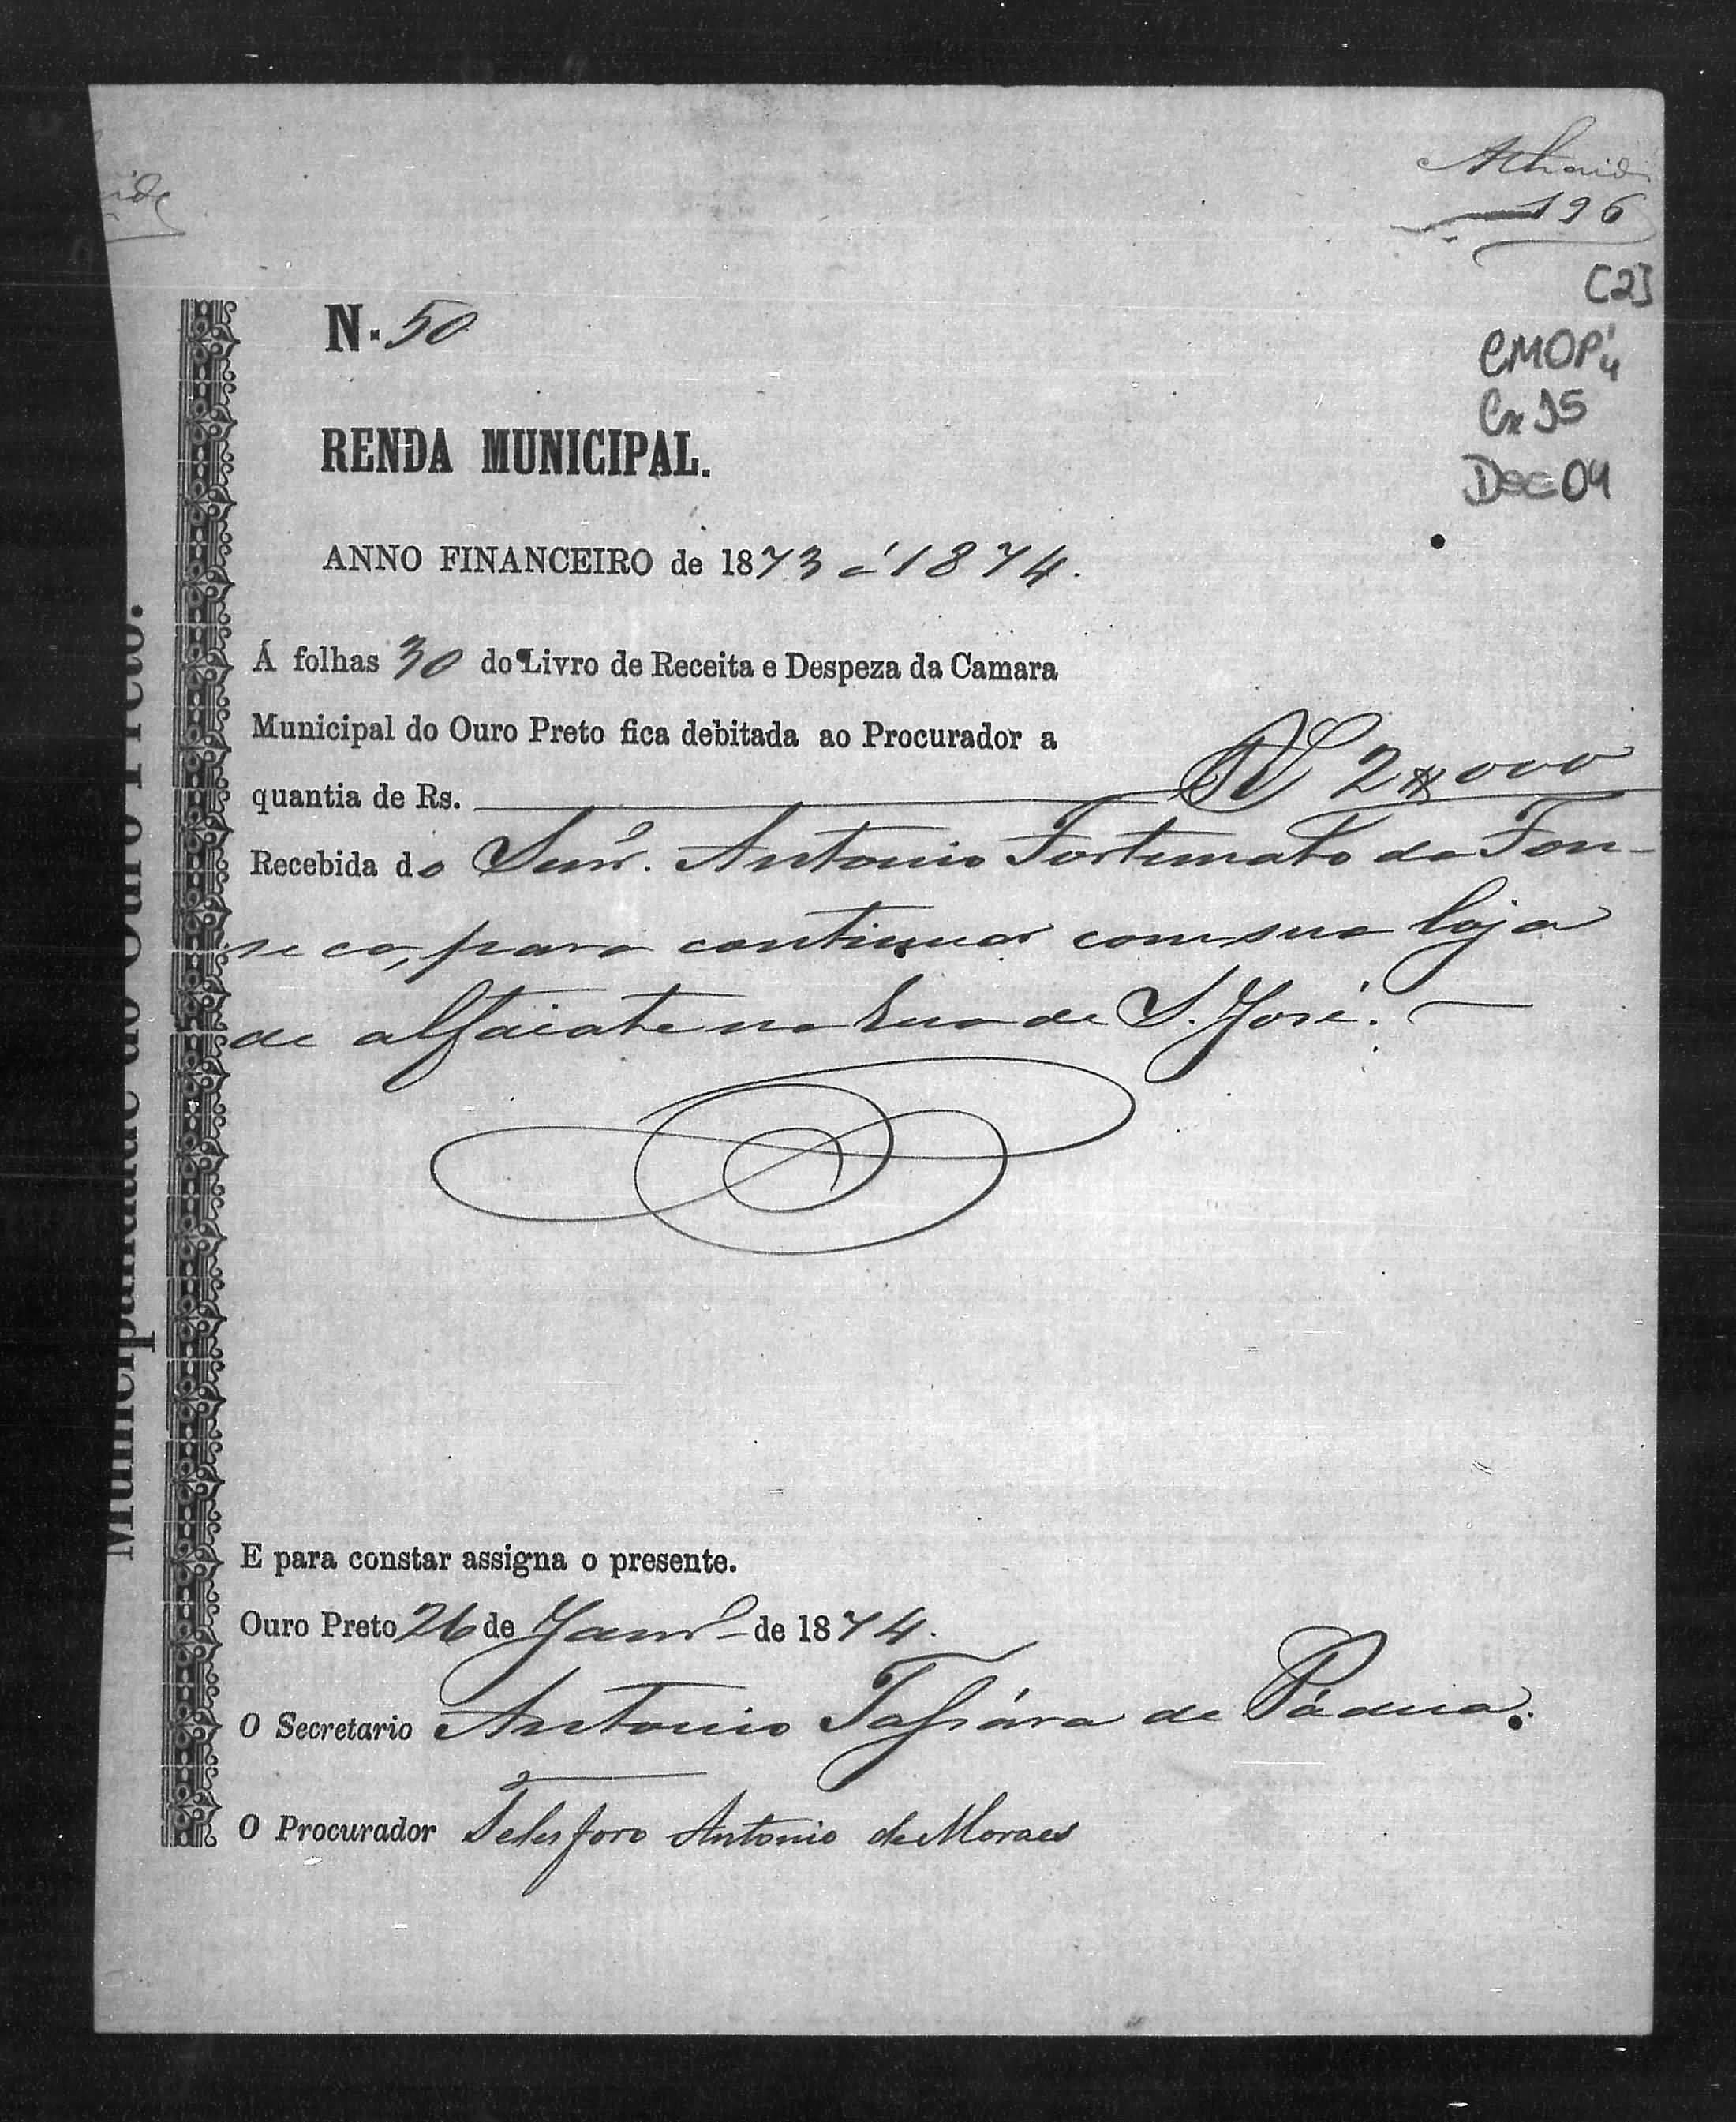 196
[2]
CMOP
Cx 15
Doc 04
N. 50
RENDA MUNICIPAL.
ANNO FINANCEIRO de 1873 á 1874.
Á folhas 30 do Livro de Receita e Despeza da Camara
Municipal do Ouro Preto fica debitada ao Procurador a
quantia de Rs. R$ 2$000
Recebida do Senr. Antonio Fortunato da Fon-
seca, para continuar com sua loja
de alfaiate na Rua de S. José.
E para constar assigna o presente.
Ouro Preto 26 de Janr. de 1874.
O Secretario Antonio de Pádua.
O Procurador Telesforo Antonio de Moraes
Municipalidade do Ouro Preto.